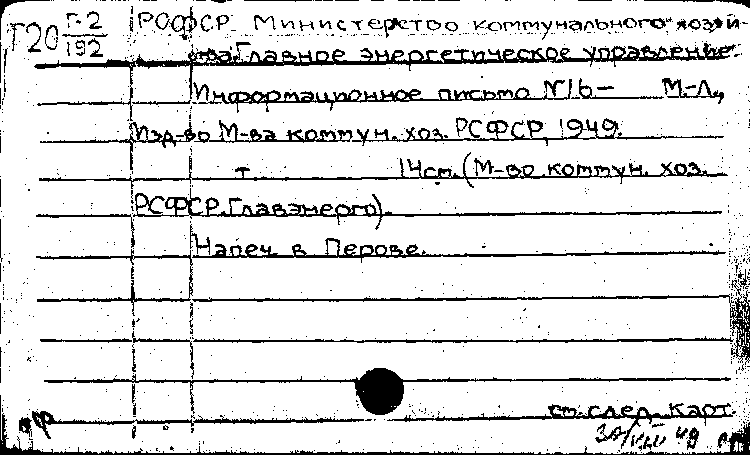 Г20 Г-2/192 РСФСР Министерство коммунального хозяй-
ства. Главное энергетическое управление.
Информационное письмо №16— М.-Л.,
Изд-во М-ва коммун. хоз. РСФСР, 1949.
т. 14см. (М-во коммун. хоз.
РСФСР. Главэнерго).
Напеч. в Перове.
см. след. карт.
30/VIII 49